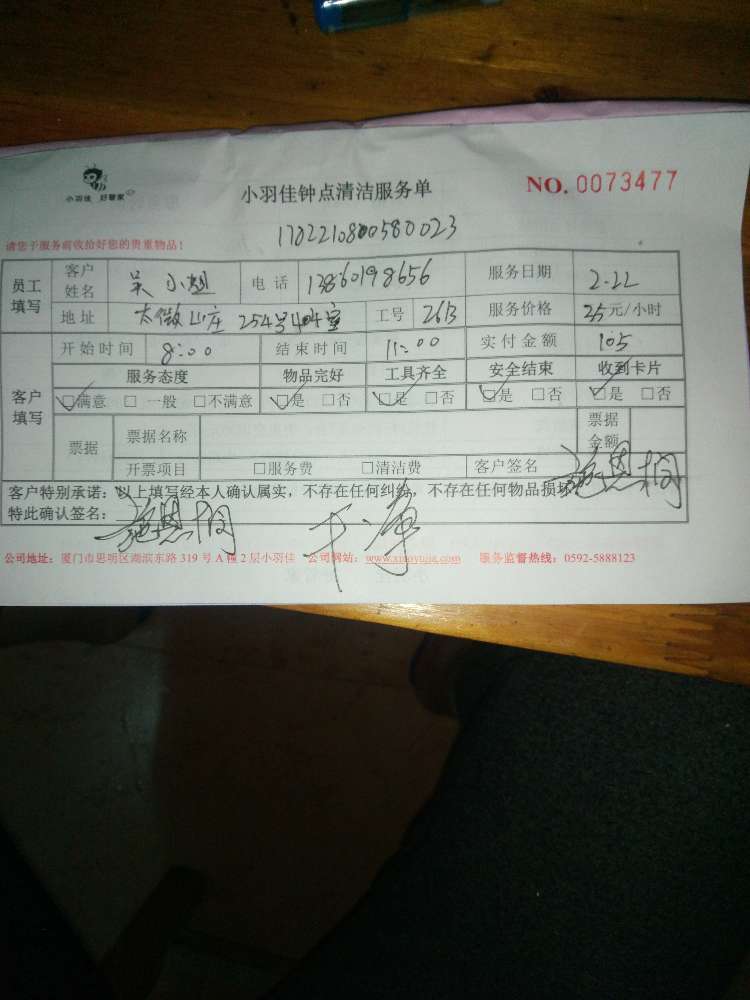 小羽佳 好管家
小羽佳钟点清洁服务单
NO. 0073477
1702210800580023
请您于服务前收拾好您的贵重物品！
员工填写
客户姓名 吴小姐 电话 13860198656 服务日期 2.22
地址 太微山庄 254号404室 工号 26B 服务价格 35元/小时
客户填写
开始时间 8:00 结束时间 11:00 实付金额 105
服务态度 物品完好 工具齐全 安全结束 收到卡片
☑满意 □一般 □不满意 ☑是 □否 ☑是 □否 ☑是 □否 ☑是 □否
票据 票据名称 票据金额
开票项目 □服务费 □清洁费 客户签名 施恩桐
客户特别承诺：以上填写经本人确认属实，不存在任何纠纷，不存在任何物品损坏
特此确认签名： 施恩桐 干净
公司地址：厦门市思明区湖滨东路 319 号 A 幢 2 层小羽佳 公司网站：www.xiaoyujia.com 服务监督热线：0592-5888123